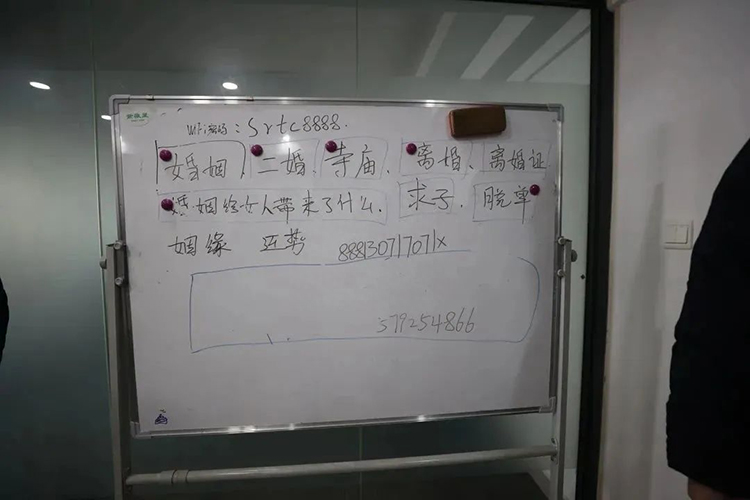 WiFi密码：Srtc8888.
婚姻、二婚、寺庙、离婚、离婚证
婚姻给女人带来了什么、求子、脱单
姻缘 运势 888130717071x
579254866